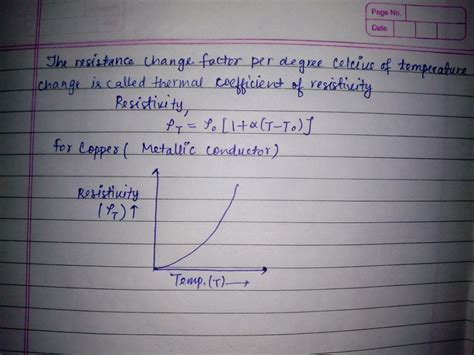 Page No.
Date
The resistance change factor per degree celcius of temperature
change is called thermal coefficient of resistivity
Resistivity,
ρT = ρ0 [1+α(T-T0)]
for Copper ( Metallic conductor)
Resistivity
(ρT)↑
Temp.(T) →